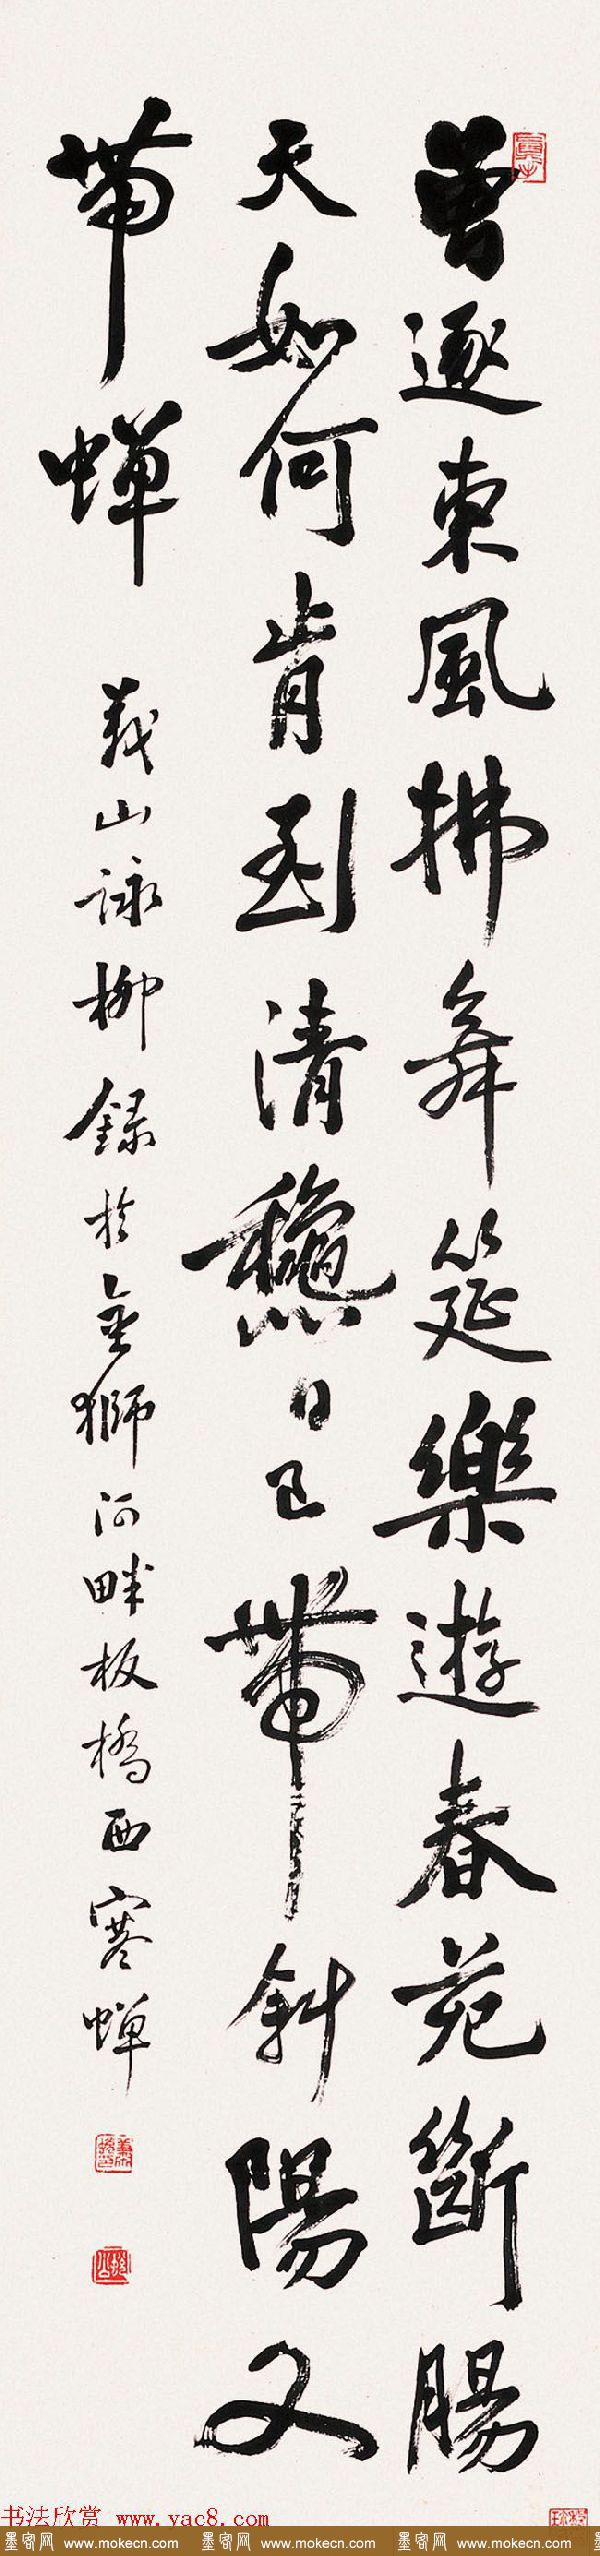 曾逐東風拂舞筵樂遊春苑斷腸
天如何肯到清龝日已帶斜陽又
帶蟬
義山詠柳錄於金獅河畔板橋西寒蟬
书法欣赏 www.yac8.com
墨客网 www.mokecn.com 墨客网 www.mokecn.com 墨客网 www.mokecn.com